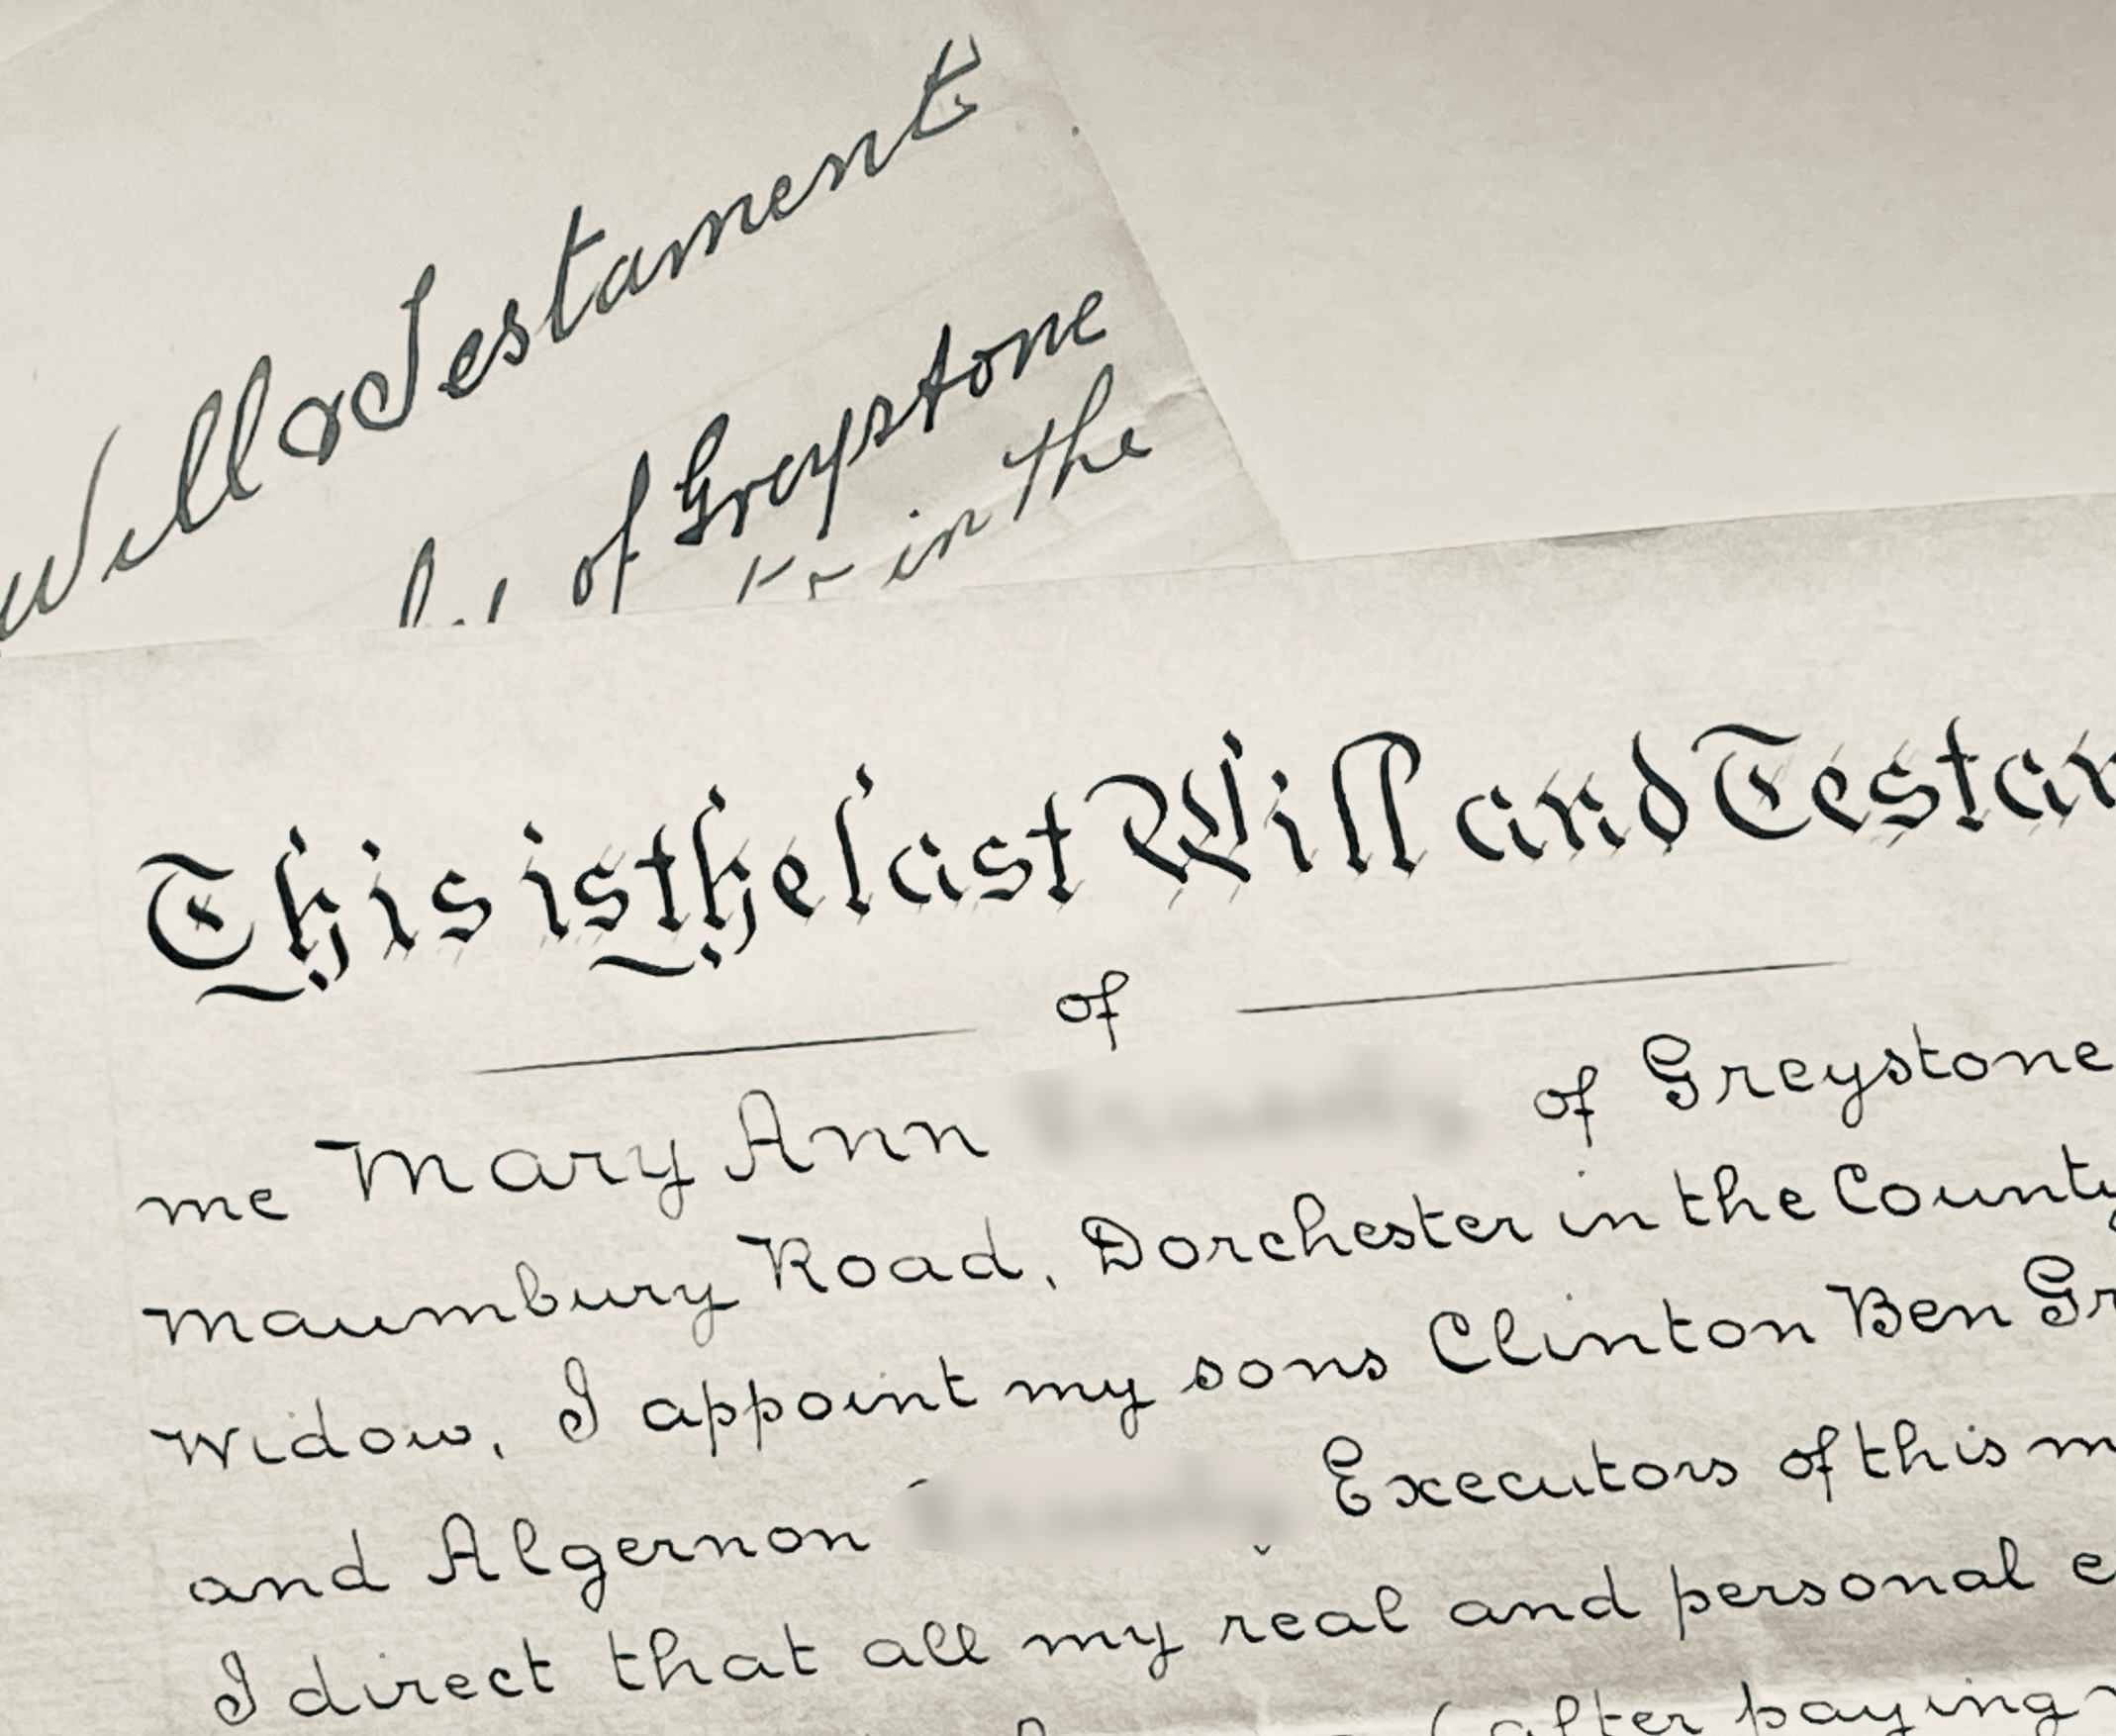 Will & Testament
of Greystone
in the
This is the last Will and Testam
of
me Mary Ann of Greystone
Maumbury Road, Dorchester in the County
Widow, I appoint my sons Clinton Ben Gr
and Algernon Executors of this m
I direct that all my real and personal e
(after paying